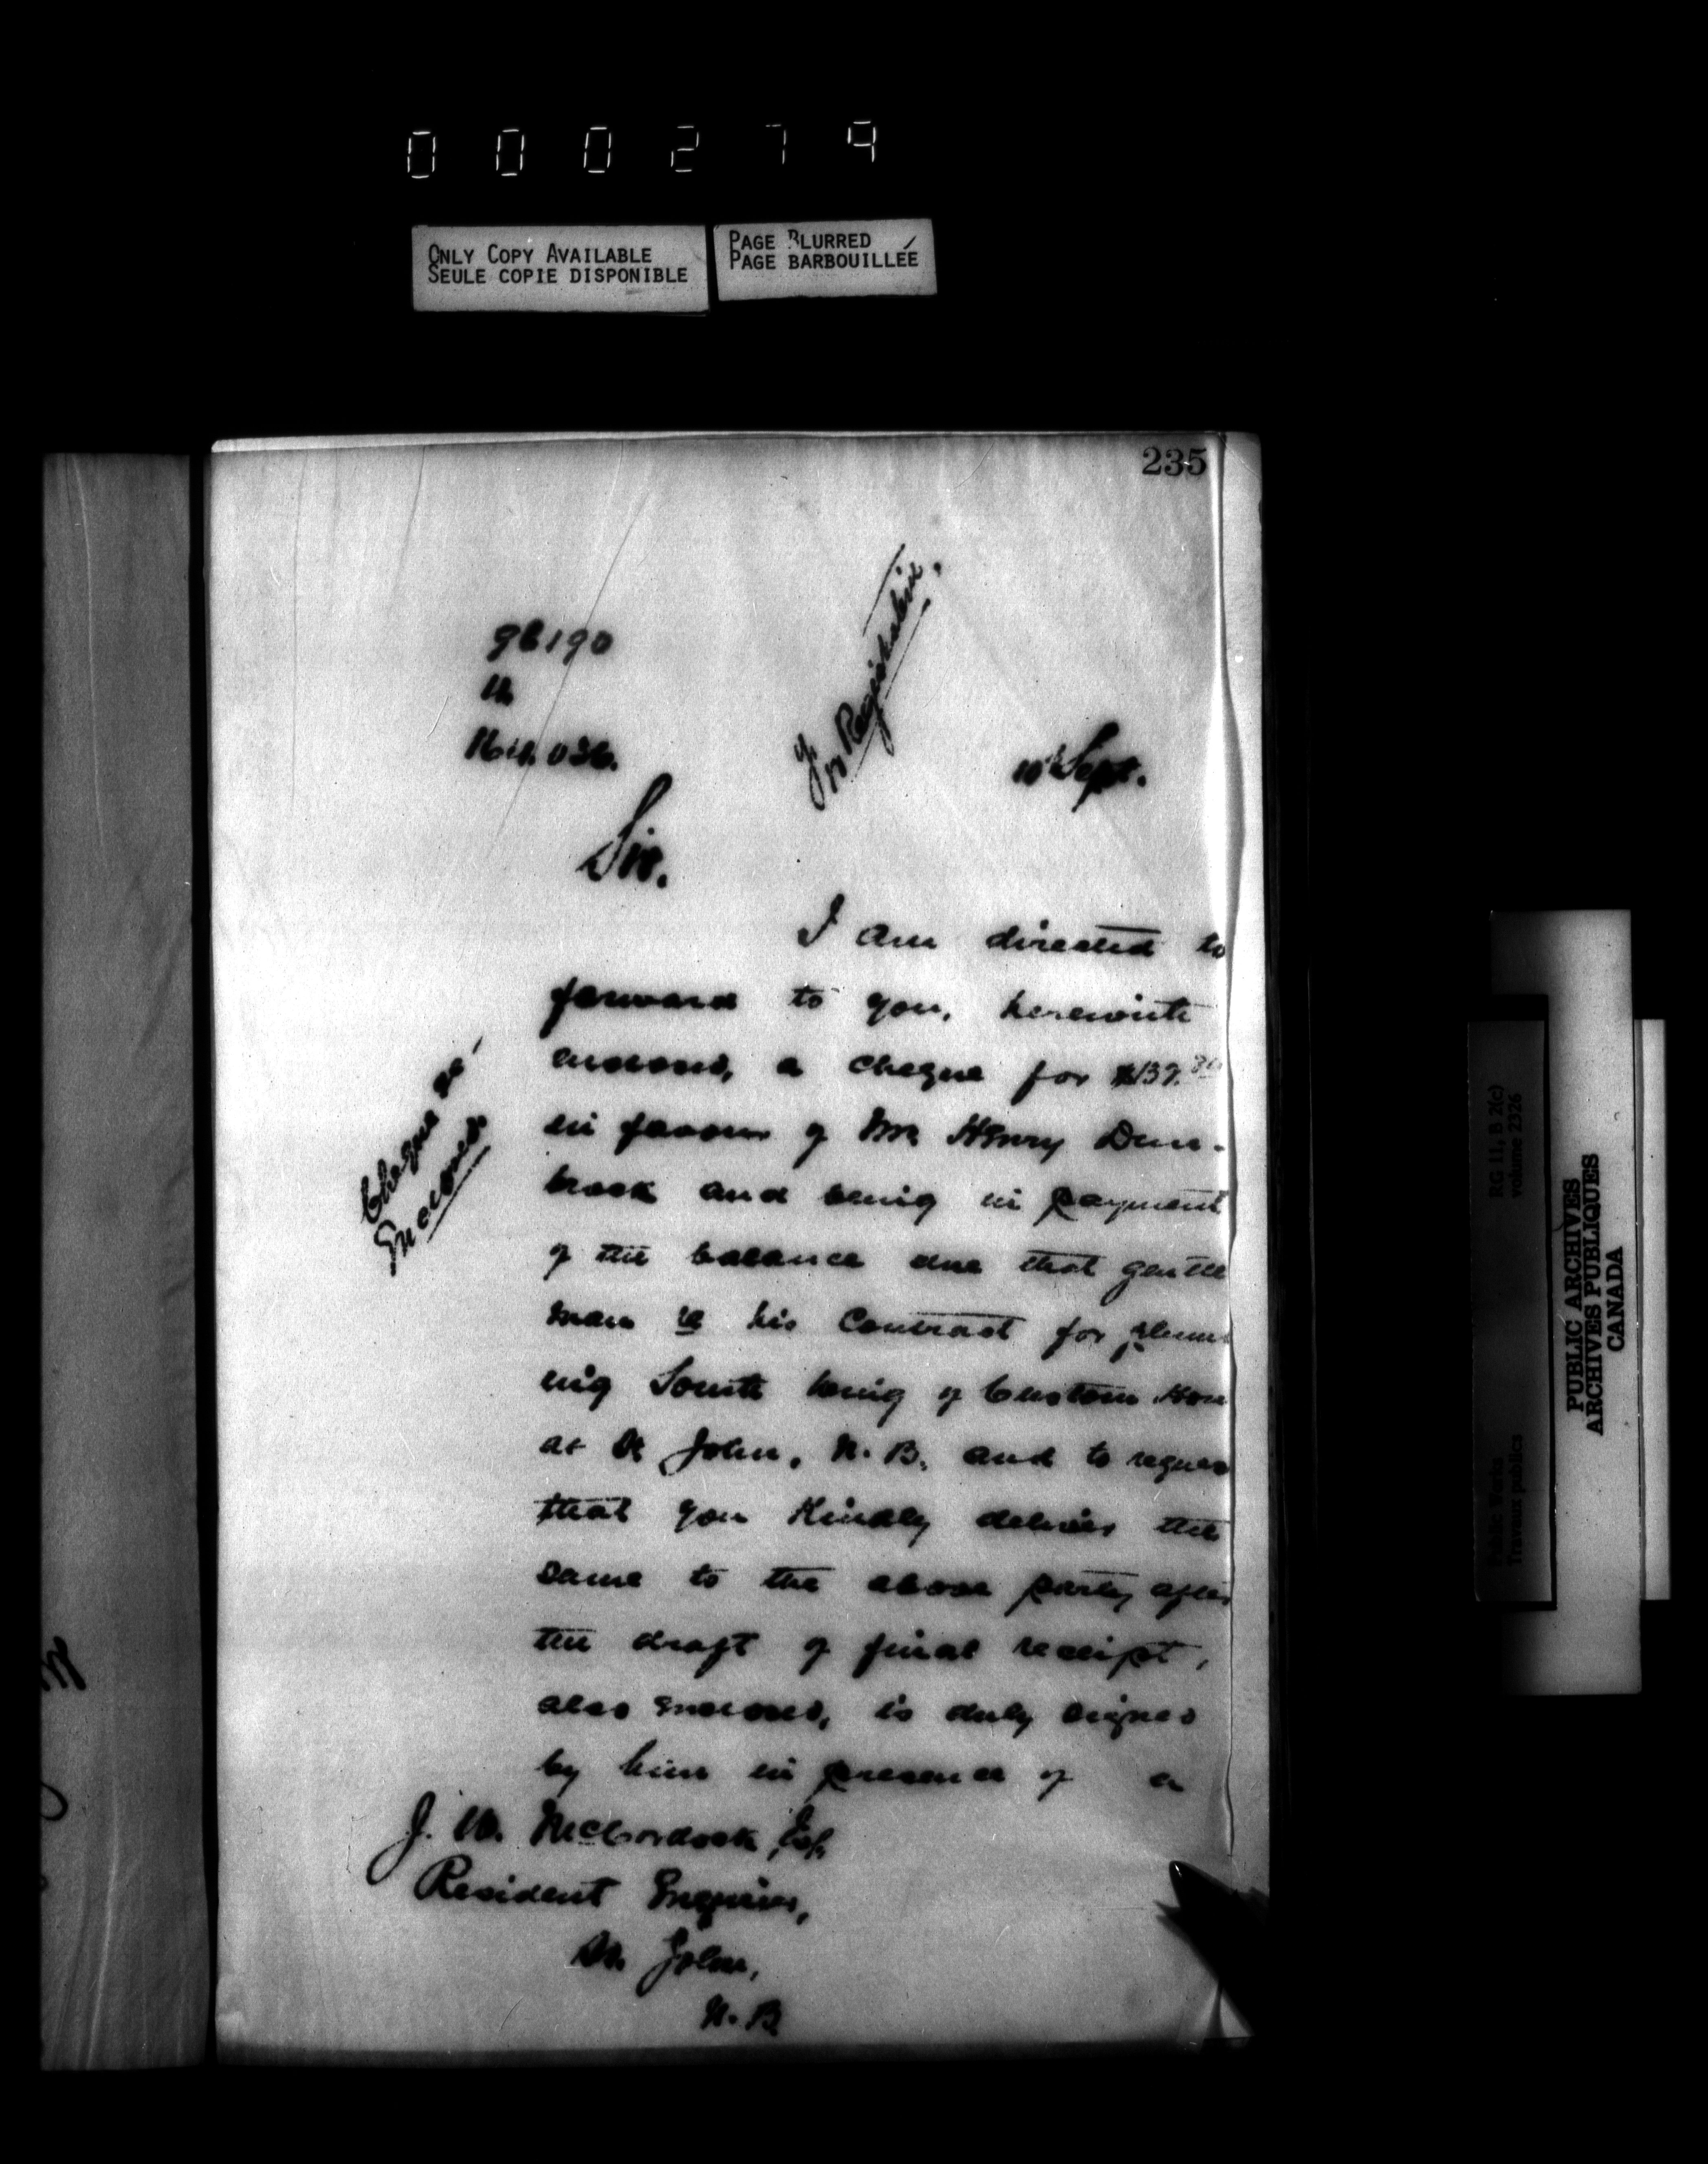 000279
ONLY COPY AVAILABLE
SEULE COPIE DISPONIBLE
PAGE BLURRED
PAGE BARBOUILLÉE
235
Registration.
10 Sept.
Sir.
I am directed to
forward to you, herewith
enclosed, a cheque for
in favour of Mr Henry Dun-
brack and being in payment
of the balance due that gentle
man re his Contract for plumb
ing South wing of Custom Hou
at St John, N.B. and to reques
that you Kindly deliver the
same to the above party after
the draft of final receipt,
also enclosed, is duly signed
by him in presence of a
Cheque
Enclosed
J. W. Esq.
Resident Engineer,
St. John,
N.B.
RG 11, B 2(c)
volume 2326
Public Works
Travaux publics
PUBLIC ARCHIVES
ARCHIVES PUBLIQUES
CANADA